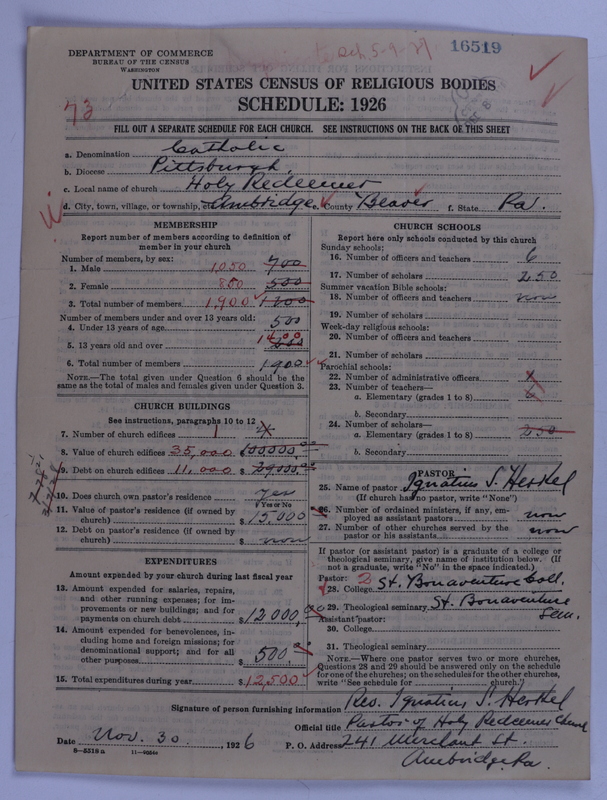 16519
DEPARTMENT OF COMMERCE
BUREAU OF THE CENSUS
WASHINGTON
UNITED STATES CENSUS OF RELIGIOUS BODIES
SCHEDULE: 1926
73
FILL OUT A SEPARATE SCHEDULE FOR EACH CHURCH. SEE INSTRUCTIONS ON THE BACK OF THIS SHEET
a. Denomination Catholic
b. Diocese Pittsburgh
c. Local name of church Holy Redeemer
d. City, town, village, or township, etc. Ambridge e. County Beaver f. State Pa.
MEMBERSHIP
Report number of members according to definition of
member in your church
Number of members, by sex:
1. Male 1,050 700
2. Female 850 500
3. Total number of members 1,900 1200
Number of members under and over 13 years old:
4. Under 13 years of age 500
5. 13 years old and over 1400
6. Total number of members 1900
NOTE.—The total given under Question 6 should be the
same as the total of males and females given under Question 3.
CHURCH BUILDINGS
See instructions, paragraphs 10 to 12
7. Number of church edifices 1
8. Value of church edifices $ 35,000 100000.00
9. Debt on church edifices $ 11,000 29000.00
10. Does church own pastor's residence Yes
Yes or No
11. Value of pastor's residence (if owned by
church) $ 15,000
12. Debt on pastor's residence (if owned by
church) $ non
EXPENDITURES
Amount expended by your church during last fiscal year
13. Amount expended for salaries, repairs,
and other running expenses; for im-
provements or new buildings; and for
payments on church debt $ 12000.00
14. Amount expended for benevolences, in-
cluding home and foreign missions; for
denominational support; and for all
other purposes $ 500.
15. Total expenditures during year $ 12,500
CHURCH SCHOOLS
Report here only schools conducted by this church
Sunday schools:
16. Number of officers and teachers 6
17. Number of scholars 250
Summer vacation Bible schools:
18. Number of officers and teachers non
19. Number of scholars
Week-day religious schools:
20. Number of officers and teachers
21. Number of scholars
Parochial schools:
22. Number of administrative officers
23. Number of teachers—
a. Elementary (grades 1 to 8) 6
b. Secondary
24. Number of scholars—
a. Elementary (grades 1 to 8) 250
b. Secondary
PASTOR
25. Name of pastor Ignatius S. Herkel
(If church has no pastor, write "None")
26. Number of ordained ministers, if any, em-
ployed as assistant pastors non
27. Number of other churches served by the
pastor or his assistants non
If pastor (or assistant pastor) is a graduate of a college or
theological seminary, give name of institution below. (If
not a graduate, write "No" in the space indicated.)
Pastor: 2
28. College St. Bonaventure Coll.
29. Theological seminary St. Bonaventure
Sem.
Assistant pastor:
30. College
31. Theological seminary
NOTE.—Where one pastor serves two or more churches,
Questions 28 and 29 should be answered only on the schedule
for one of the churches; on the schedules for the other churches,
write "See schedule for church.")
Signature of person furnishing information Rev. Ignatius S. Herkel
Official title Pastor of Holy Redeemer Church
Date Nov. 30, 1926 P. O. Address 241 Merchant St.
8—5318a 11—9024a
Ambridge, Pa.